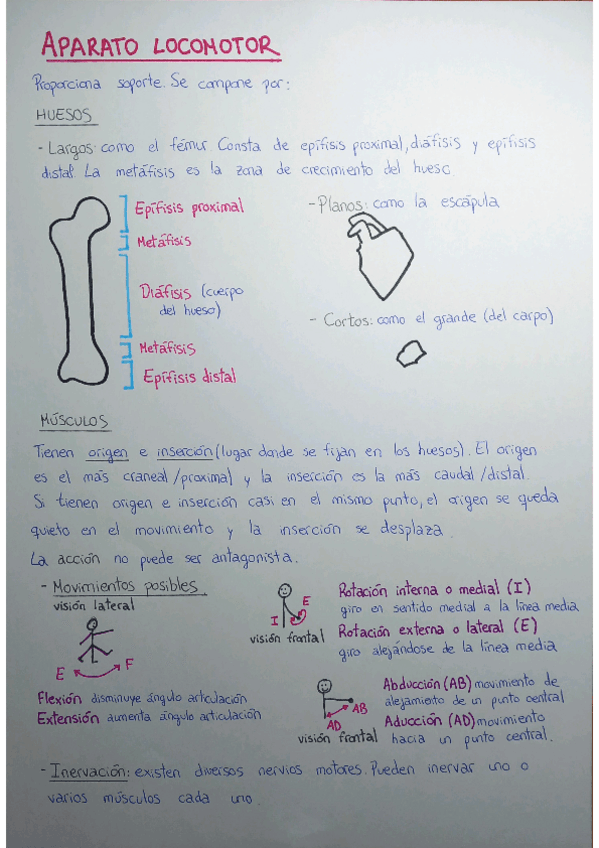 APARATO LOCOMOTOR
Proporciona soporte. Se compone por:
HUESOS
- Largos: como el fémur. Consta de epífisis proximal, diáfisis y epífisis
distal. La metáfisis es la zona de crecimiento del hueso.
Epífisis proximal
Metáfisis
Diáfisis (cuerpo
del hueso)
Metáfisis
Epífisis distal
- Planos: como la escápula
- Cortos: como el grande (del carpo)
MÚSCULOS
Tienen origen e inserción (lugar donde se fijan en los huesos). El origen
es el más craneal/proximal y la inserción es la más caudal/distal.
Si tienen origen e inserción casi en el mismo punto, el origen se queda
quieto en el movimiento y la inserción se desplaza.
La acción no puede ser antagonista.
- Movimientos posibles
visión lateral
E
F
Flexión disminuye ángulo articulación
Extensión aumenta ángulo articulación
E
I
visión frontal
Rotación interna o medial (I)
giro en sentido medial a la línea media
Rotación externa o lateral (E)
giro alejándose de la línea media
AB
AD
visión frontal
Abducción (AB) movimiento de
alejamiento de un punto central
Aducción (AD) movimiento
hacia un punto central.
- Inervación: existen diversos nervios motores. Pueden inervar uno o
varios músculos cada uno.